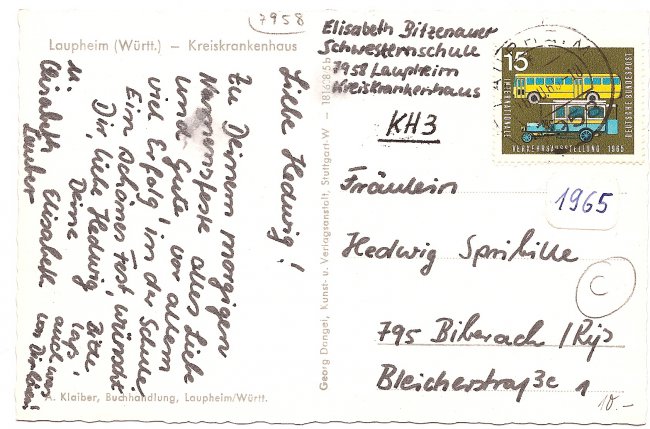 7958
Laupheim (Württ.) — Kreiskrankenhaus
Elisabeth Bitzenauer
Schwesternschule
7958 Laupheim
Kreiskrankenhaus
KH3
15
INTERNATIONALE
VERKEHRSAUSSTELLUNG 1965
DEUTSCHE BUNDESPOST
Liebe Hedwig!
Zu Deinem morgigen
Namensfeste alles Liebe
und Gute vor allem
viel Erfolg in der Schule
Ein schönes Fest wünscht
Dir, liebe Hedwig
Deine
Elisabeth
Bitte
lass
auch was
von Dir hören!
Fräulein
Hedwig
795 Biberach/Riß
Bleicherstraße 1
1965
C
10.-
Georg Dangel, Kunst- u. Verlagsanstalt, Stuttgart-W — 1816:8:5b
A. Klaiber, Buchhandlung, Laupheim/Württ.